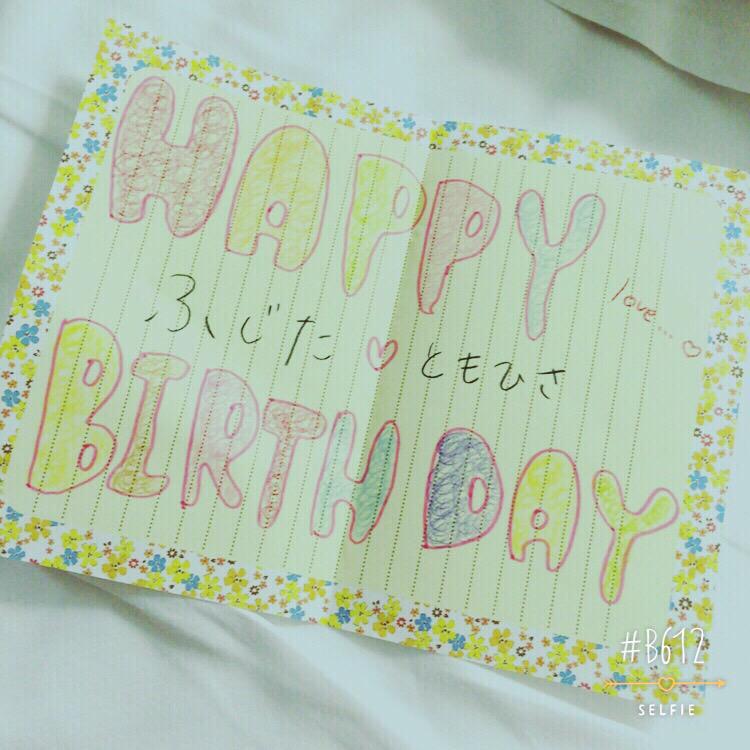 HAPPY
love...♡
ふじた♡ともひさ
BIRTHDAY
#B612
SELFIE